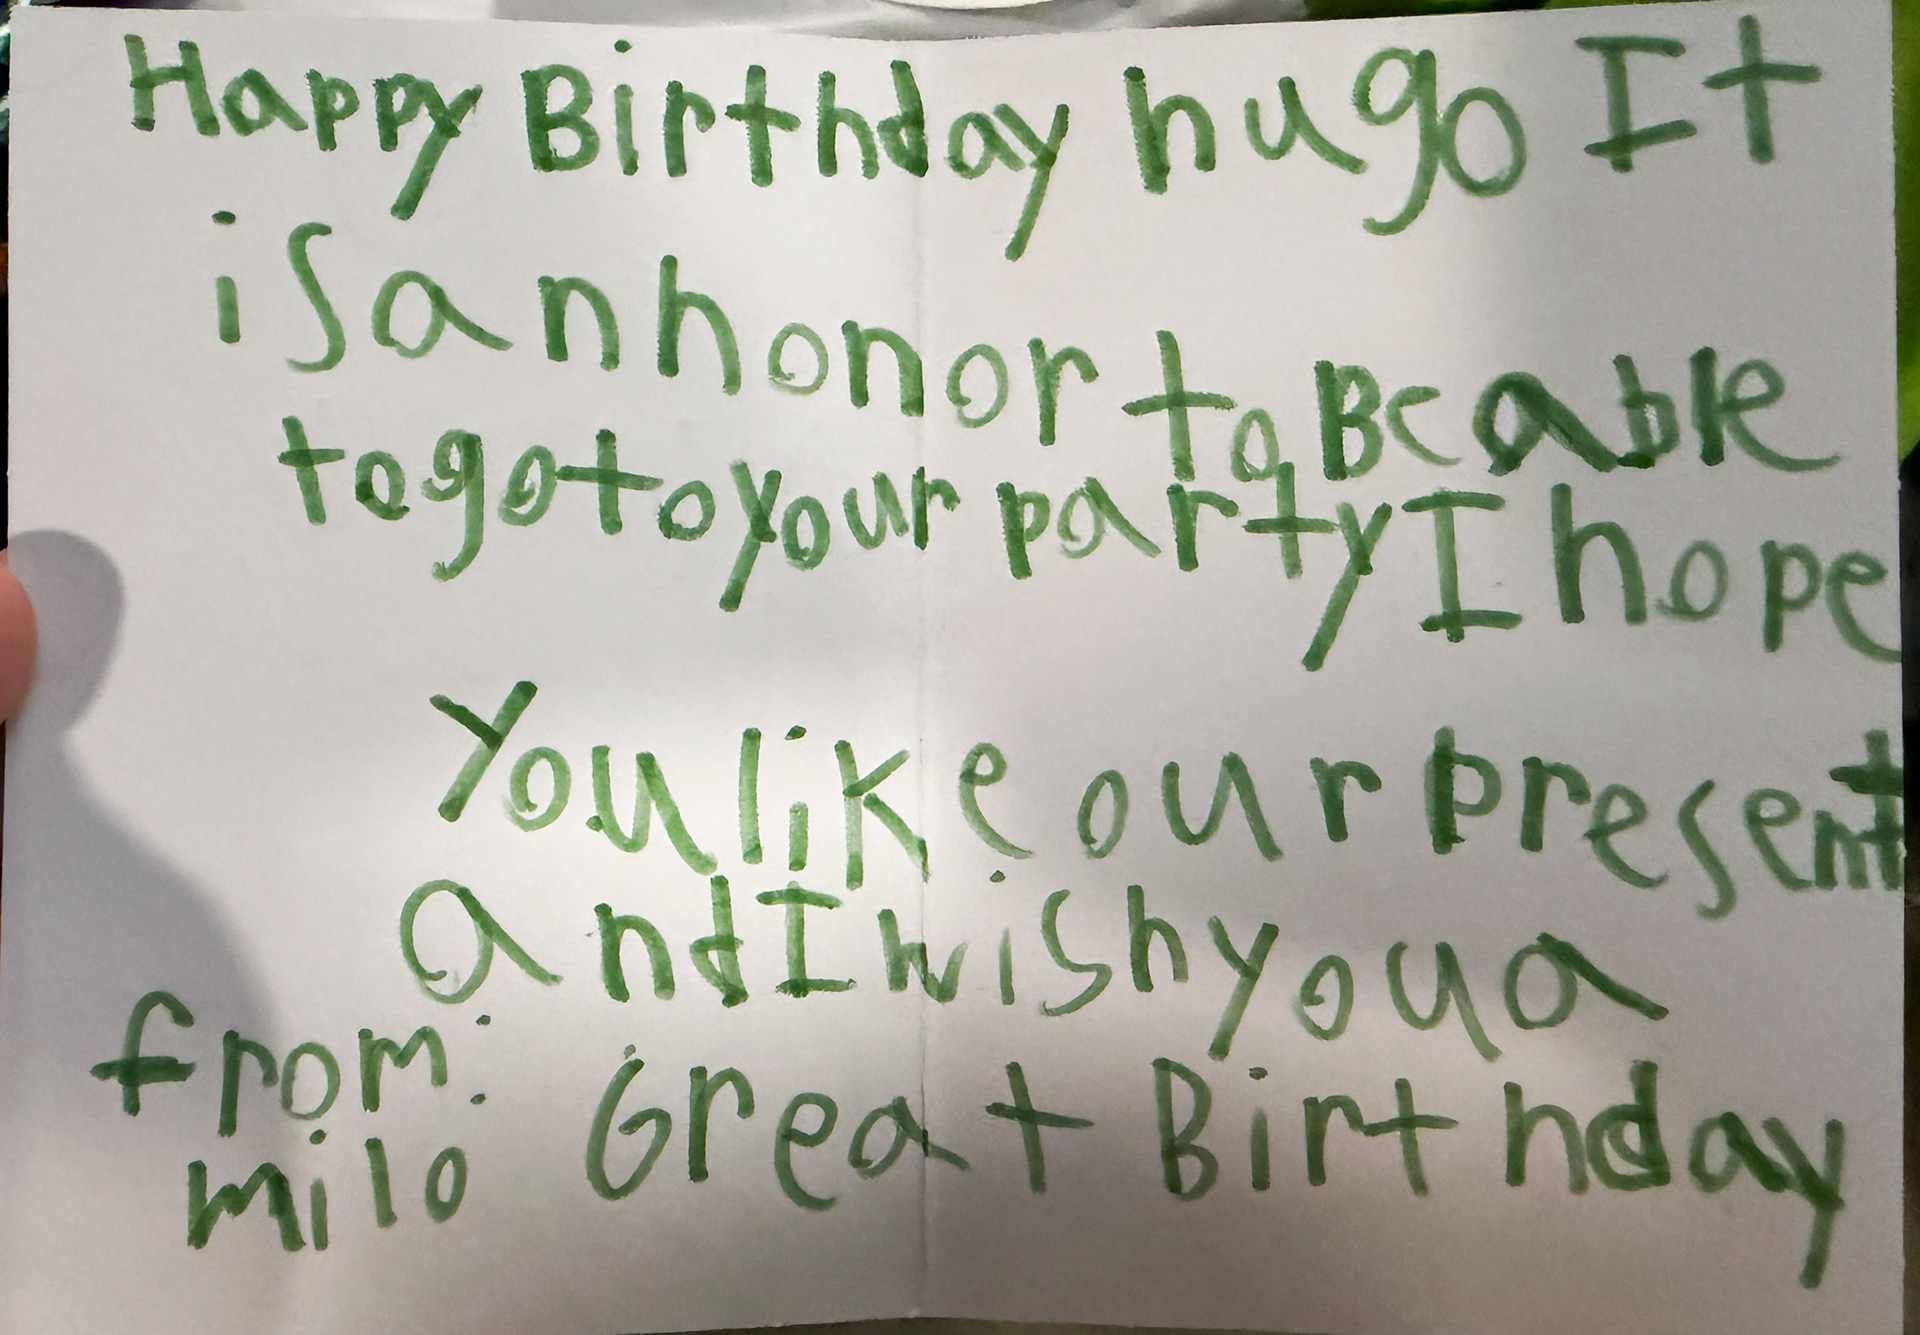 Happy Birthday hugo It
is an honor to Be able
to go to your party I hope
You like our present
and I wish you a
Great Birthday
from:
milo